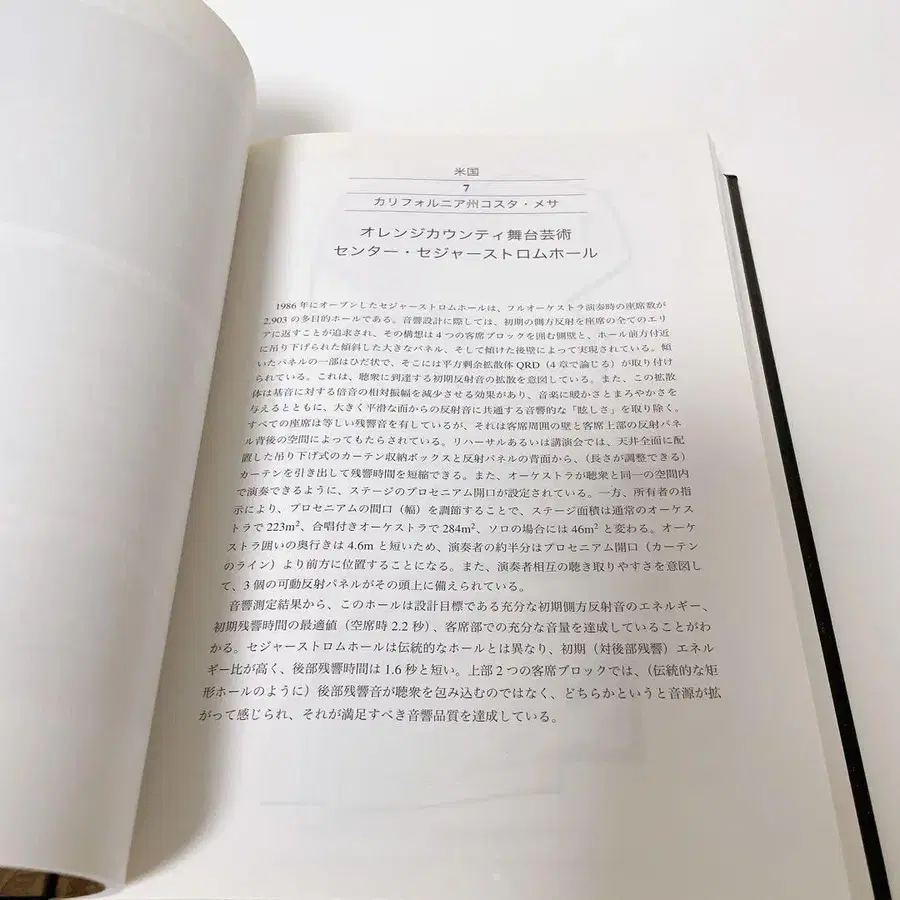 米国
7
カリフォルニア州コスタ・メサ
オレンジカウンティ舞台芸術
センター・セジャーストロムホール
1986 年にオープンしたセジャーストロムホールは、フルオーケストラ演奏時の座席数が
2,903 の多目的ホールである。音響設計に際しては、初期の側方反射を座席の全てのエリ
アに返すことが追求され、その構想は 4 つの客席ブロックを囲む側壁と、ホール前方付近
に吊り下げられた傾斜した大きなパネル、そして傾けた後壁によって実現されている。傾
いたパネルの一部はひだ状で、そこには平方剰余拡散体 QRD（4 章で論じる）が取り付け
られている。これは、聴衆に到達する初期反射音の拡散を意図している。また、この拡散
体は基音に対する倍音の相対振幅を減少させる効果があり、音楽に暖かさとまろやかさを
与えるとともに、大きく平滑な面からの反射音に共通する音響的な「眩しさ」を取り除く。
すべての座席は等しい残響音を有しているが、それは客席周囲の壁と客席上部の反射パネ
ル背後の空間によってもたらされている。リハーサルあるいは講演会では、天井全面に配
置した吊り下げ式のカーテン収納ボックスと反射パネルの背面から、（長さが調整できる）
カーテンを引き出して残響時間を短縮できる。また、オーケストラが聴衆と同一の空間内
で演奏できるように、ステージのプロセニアム開口が設定されている。一方、所有者の指
示により、プロセニアムの間口（幅）を調節することで、ステージ面積は通常のオーケス
トラで 223m²、合唱付きオーケストラで 284m²、ソロの場合には 46m² と変わる。オーケ
ストラ囲いの奥行きは 4.6m と短いため、演奏者の約半分はプロセニアム開口（カーテン
のライン）より前方に位置することになる。また、演奏者相互の聴き取りやすさを意図し
て、3 個の可動反射パネルがその頭上に備えられている。
音響測定結果から、このホールは設計目標である充分な初期側方反射音のエネルギー、
初期残響時間の最適値（空席時 2.2 秒）、客席部での充分な音量を達成していることがわ
かる。セジャーストロムホールは伝統的なホールとは異なり、初期（対後部残響）エネル
ギー比が高く、後部残響時間は 1.6 秒と短い。上部 2 つの客席ブロックでは、（伝統的な矩
形ホールのように）後部残響音が聴衆を包み込むのではなく、どちらかというと音源が拡
がって感じられ、それが満足すべき音響品質を達成している。